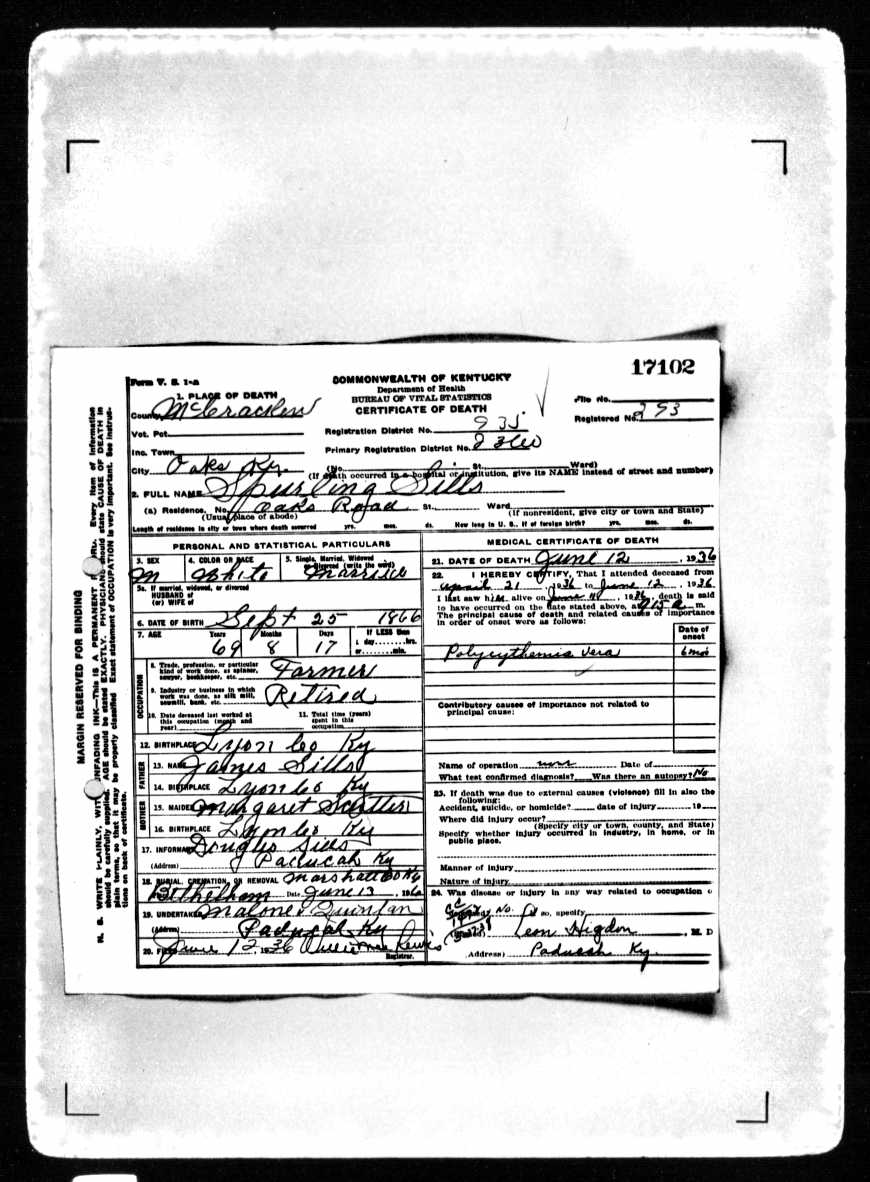 17102
Form V. S. 1-a
COMMONWEALTH OF KENTUCKY
Department of Health
BUREAU OF VITAL STATISTICS
CERTIFICATE OF DEATH
File No.
Registered No. 293
1. PLACE OF DEATH
County McCracken
Vot. Pct.
Inc. Town
City Oaks Ky.
Registration District No. 935
Primary Registration District No.
(No. St. Ward)
(If death occurred in a hospital or institution, give its NAME instead of street and number)
2. FULL NAME Spurling Sills
(a) Residence, No. Oaks Road St. Ward
(Usual place of abode) (If nonresident, give city or town and State)
Length of residence in city or town where death occurred yrs. mos. ds. How long in U. S., if of foreign birth? yrs. mos. ds.
PERSONAL AND STATISTICAL PARTICULARS
3. SEX 4. COLOR OR RACE 5. Single, Married, Widowed or Divorced (write the word)
M White Married
5a. If married, widowed, or divorced
HUSBAND of
(or) WIFE of
6. DATE OF BIRTH Sept 25 1866
7. AGE Years Months Days If LESS than
69 8 17 1 day hrs.
or min.
OCCUPATION
8. Trade, profession, or particular kind of work done, as spinner, sawyer, bookkeeper, etc. Farmer
9. Industry or business in which work was done, as silk mill, sawmill, bank, etc. Retired
10. Date deceased last worked at this occupation (month and year)
11. Total time (years) spent in this occupation
12. BIRTHPLACE Lyon Co Ky
FATHER
13. NAME James Sills
14. BIRTHPLACE Lyon Co Ky
MOTHER
15. MAIDEN Margaret
16. BIRTHPLACE Lyon Co Ky
17. INFORMANT Douglas Sills
(Address) Paducah Ky
18. BURIAL, CREMATION, OR REMOVAL Marshall Co Ky
Date June 13, 19
19. UNDERTAKER Malone & Quinlan
(Address) Paducah Ky
20. FILED June 12, 1936
Registrar.
MEDICAL CERTIFICATE OF DEATH
21. DATE OF DEATH June 12, 1936
22. I HEREBY CERTIFY, That I attended deceased from
April 21, 1936 to June 12, 1936
I last saw him alive on June 11, 1936, death is said
to have occurred on the date stated above, at 9 15 a m.
The principal cause of death and related causes of importance
in order of onset were as follows:
Date of onset
Polycythemia Vera 6 mos
Contributory causes of importance not related to
principal cause:
Name of operation none Date of
What test confirmed diagnosis? Was there an autopsy? No
23. If death was due to external causes (violence) fill in also the
following:
Accident, suicide, or homicide? date of injury 19
Where did injury occur?
(Specify city or town, county, and State)
Specify whether injury occurred in industry, in home, or in
public place.
Manner of injury
Nature of injury
24. Was disease or injury in any way related to occupation o
No. If so, specify
Leon Higdon, M. D
(Address) Paducah Ky.
MARGIN RESERVED FOR BINDING
N. B. WRITE PLAINLY, WITH UNFADING INK—This is A PERMANENT RECORD. Every item of information
should be carefully supplied. AGE should be stated EXACTLY. PHYSICIANS should state CAUSE OF DEATH in
plain terms, so that it may be properly classified. Exact statement of OCCUPATION is very important. See instruc-
tions on back of certificate.